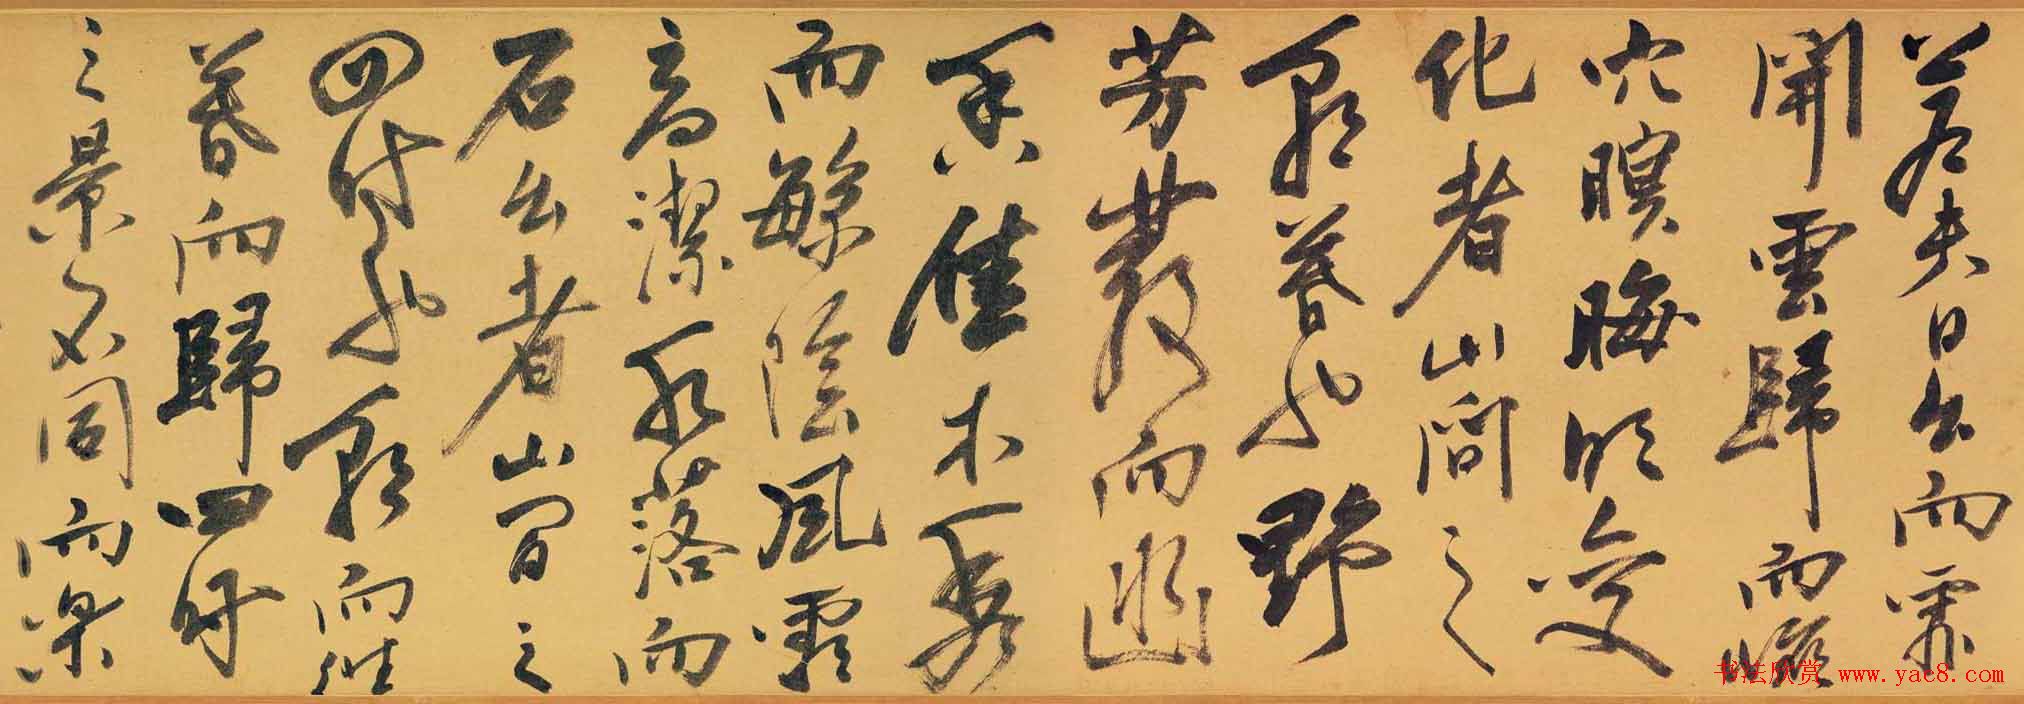 若夫日出而霏
開雲歸而巖
穴暝晦明變
化者山間之
朝暮也野
芳發而幽
香佳木秀
而繁陰風霜
高潔水落而
石出者山間之
四時也朝而往
暮而歸四時
之景不同而樂
书法欣赏 www.yac8.com